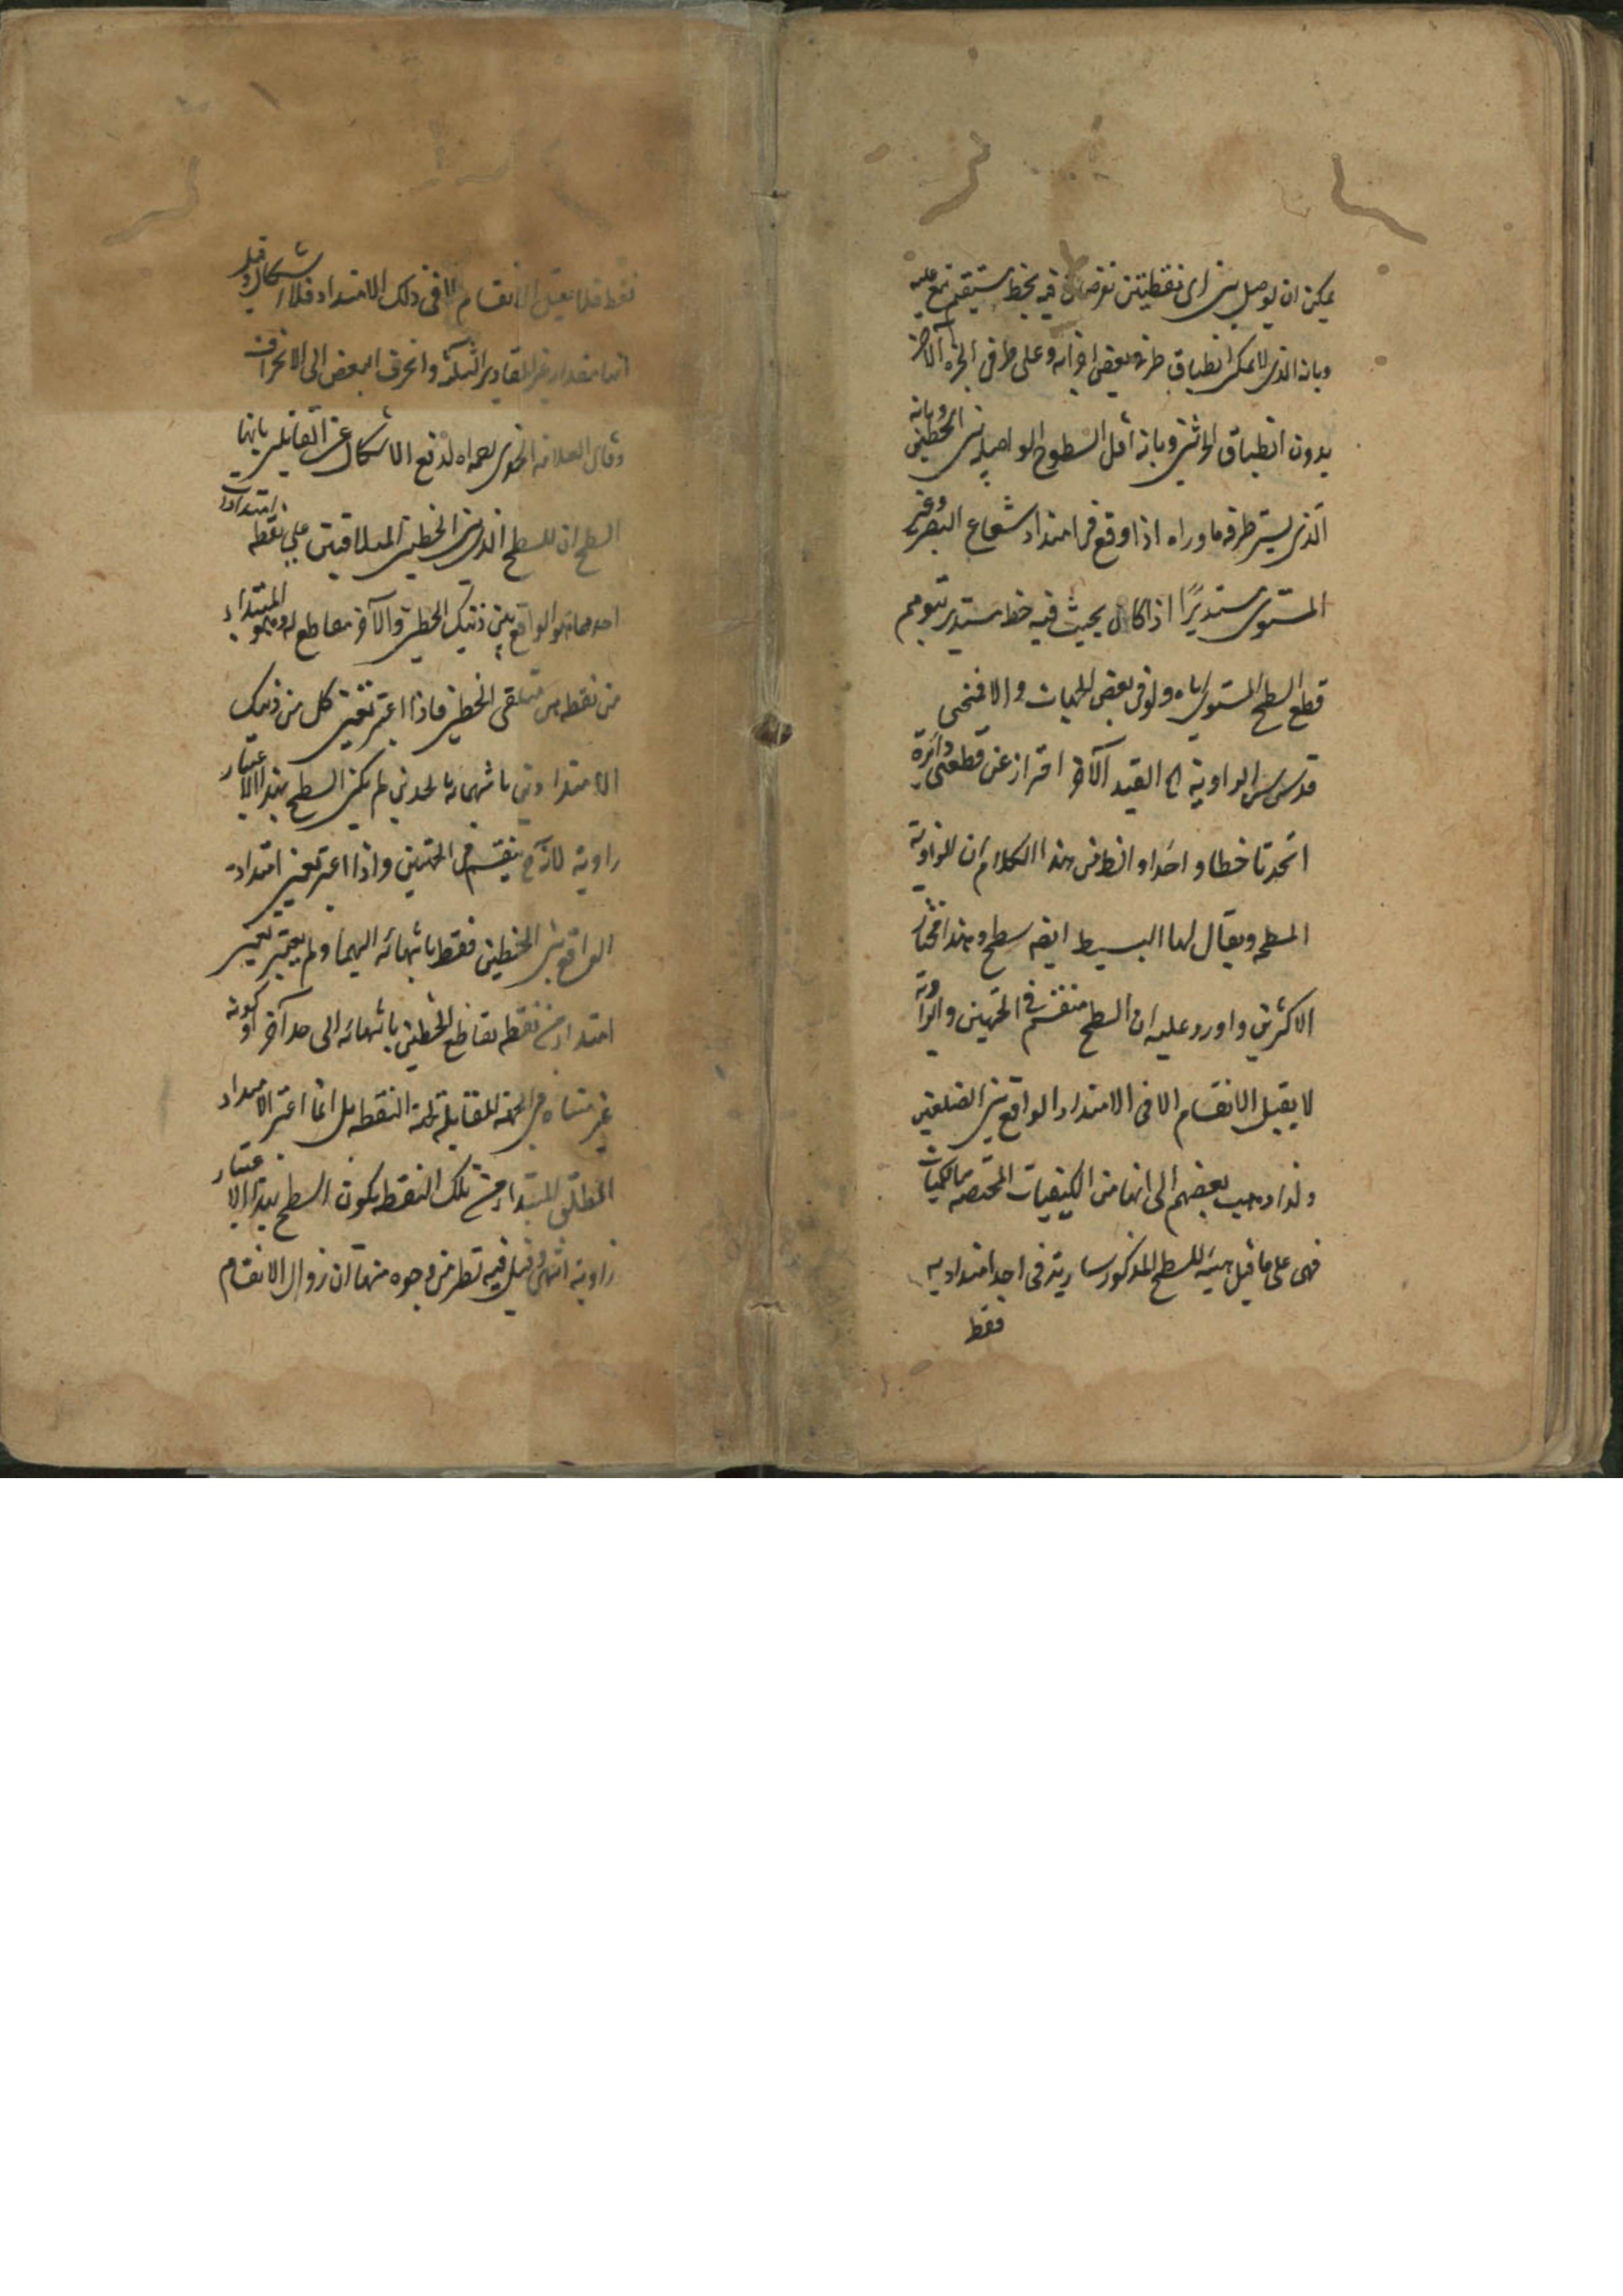 يمكن ان يوصل بين اى نقطتين تفرضان فيه بخط مستقيم يقع عليه
وبانه الذى لا يمكن انطباق طرفى بعض اجزائه على طرفى الجزء الآخر
بدون انطباق الحاشيتين وبانه اقل السطوح الواصلة بين الخطين وبانه
الذى يستر طرفه ما وراه اذا وقع فى امتداد شعاع البصر وغير
المستوى مستديرًا اذا كان بحيث فيه خط مستدير يتوهم
قطع السطح المستوى اياه ولو فى بعض الجهات والا فمنحنى
قدس سره الزاوية الخ القيد الآخر احتراز عن قطعتى دائرة
اتحدتا خطا واحدا وانظر من هذا الكلام ان الزاوية
المسطحه ويقال لها البسيط ايضه سطح وهذا مختار
الاكثرين واورد عليه ان السطح منقسم فى الجهتين والزاوية
لا يقبل الانقسام الا فى الامتداد الواقع بين الضلعين
ولذا ذهب بعضهم الى انها من الكيفيات المختصه بالكميات
فهى على ما قيل هيئة للسطح المذكور سارية فى احد امتداديه
فقط
فقط فلا يقبل الانقسام الا فى ذلك الامتداد فلا اشكال وقيل
انها مقدار غير المقادير الثلثة وانحرف البعض الى الانحراف
وقال العلامه الخفرى رحمه الله لدفع الاشكال عن القائلين بانها
السطح ان للسطح الذى بين الخطين المتلاقيين على نقطه امتدادين
احدهما هو الواقع بين ذينك الخطين والآخر مقاطع له وهو المبتداء
من نقطه هى ملتقى الخطين فاذا اعتبر تعين كل من ذينك
الامتدادين بانتهائه بالحد ين لم يكن السطح بهذا الاعتبار
زاوية لانه ح ينقسم فى الجهتين واذا اعتبر تعين امتداده
الواقع بين الخطين فقط بانتهائه اليهما ولم يعتبر تعين
امتداده من نقطه تقاطع الخطين بانتهائه الى حد آخر او كونه
غير متناه فى الجهة المقابلة لجهة النقطه بل انما اعتبر الامتداد
المطلق المبتداء من تلك النقطه يكون السطح بهذا الاعتبار
زاوية انتهى وقيل فيه نظر من وجوه منها ان زوال الانقسام